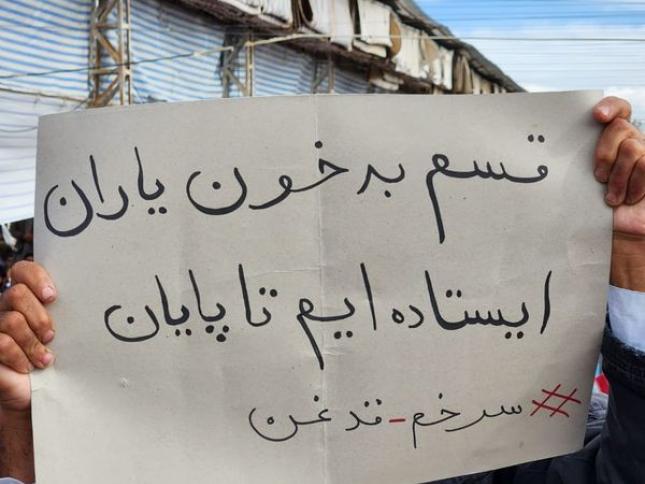 قسم به خون یاران
ایستاده ایم تا پایان
#سرخم_قدغن